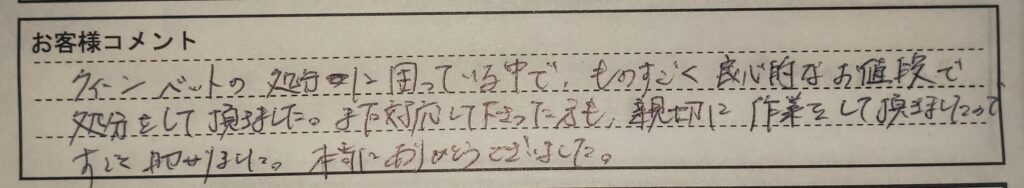 お客様コメント
クィーンベットの処分に困っている中で、ものすごく良心的なお値段で
処分をして頂きました。また対応して下さった方も、親切に作業をして頂きました
助かりました。本当にありがとうございました。